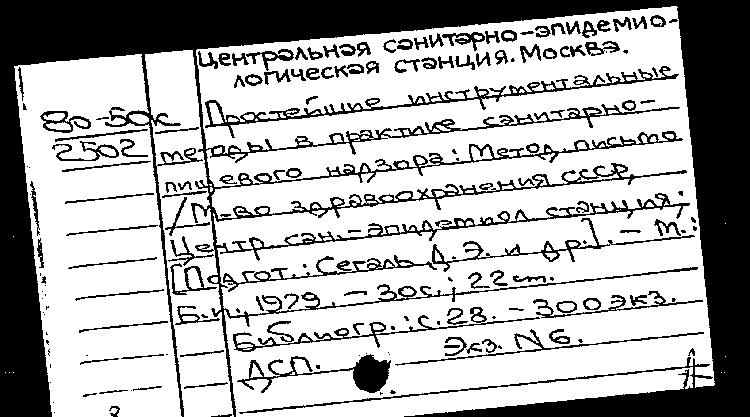 Центральная санитарно-эпидемио-
логическая станция. Москва.
80-50с
2502
Простейшие инструментальные
методы в практике санитарно-
пищевого надзора: Метод. письмо
/М-во здравоохранения СССР,
Центр. сан.-эпидемиол. станция;
[Подгот.: Сегаль Д.Э. и др.]. - М.:
Б.и., 1979. - 30с.; 22 см.
Библиогр.: с. 28. - 300 экз.
ДСП. Экз. N6.